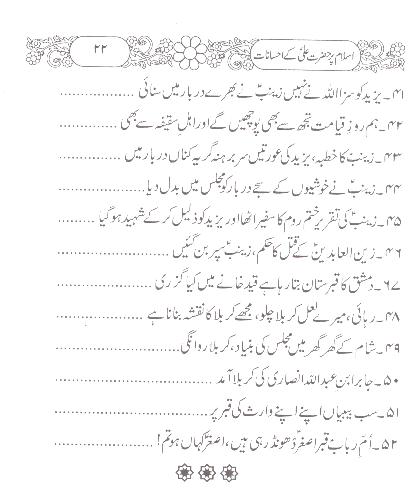 اسلام پر حضرت علیؑ کے احسانات
۲۲
۴۱۔ یزید کو سزا اللہ نے نہیں زینبؑ نے بھرے دربار میں سنائی ............
۴۲۔ ہم روزِ قیامت تجھ سے بھی پوچھیں گے اور اہل سقیفہ سے بھی ............
۴۳۔ زینبؑ کا خطبہ، یزید کی عورتیں سر برہنہ گریہ کناں دربار میں ............
۴۴۔ زینبؑ نے خوشیوں کے سجے دربار کو مجلس میں بدل دیا ............
۴۵۔ زینبؑ کی تقریر ختم روم کا سفیر اٹھا اور یزید کو ذلیل کر کے شہید ہو گیا ............
۴۶۔ زین العابدینؑ کے قتل کا حکم، زینبؑ سپر بن گئیں ............
۶۷۔ دمشق کا قبرستان بتا رہا ہے قید خانے میں کیا گزری ............
۴۸۔ رہائی، میرے لعل کربلا چلو، مجھے کربلا کا نقشہ بنانا ہے ............
۴۹۔ شام کے گھر گھر میں مجلس کی بنیاد، کربلا روانگی ............
۵۰۔ جابر ابن عبداللہ انصاری کی کربلا آمد ............
۵۱۔ سب بیبیاں اپنے اپنے وارث کی قبر پر ............
۵۲۔ اُمِ ربابؑ نے قبر اصغرؑ ڈھونڈ رہی ہیں، اصغرؑ کہاں ہو تم! ............